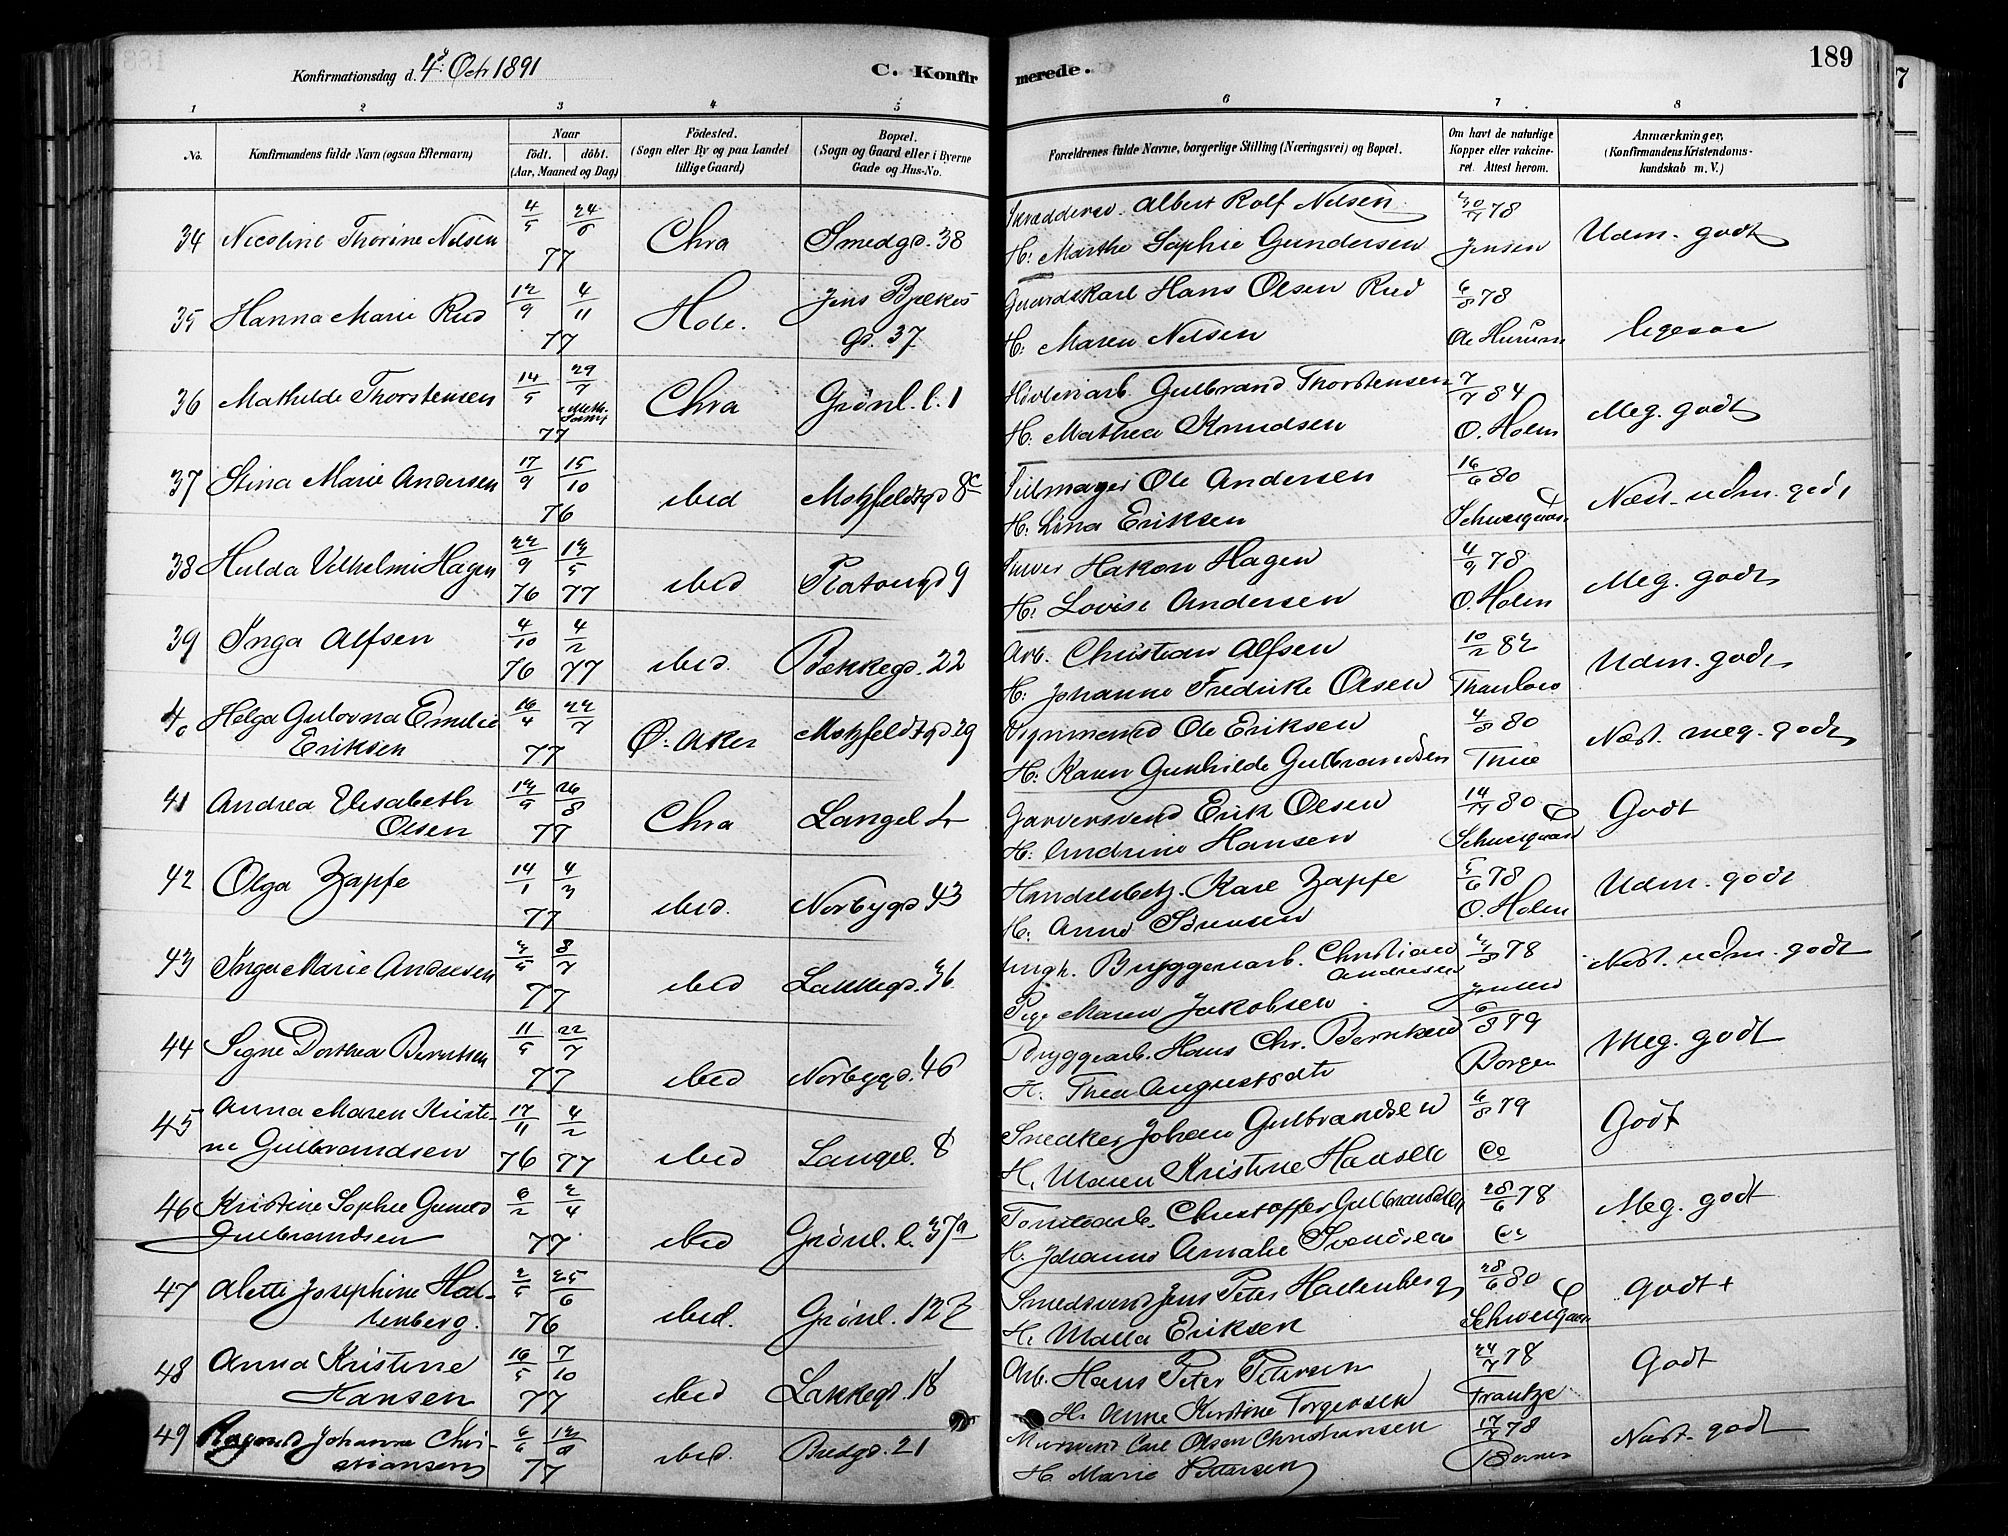 Konfirmationsdag d. 4de Octr 1891
C. Konfirmerede.
189
1 2 3 4 5 6 7 8
No.
Konfirmandens fulde Navn (ogsaa Efternavn)
Naar
födt. döbt.
(Aar, Maaned og Dag)
Födested.
(Sogn eller By og paa Landet
tillige Gaard)
Bopæl.
(Sogn og Gaard eller i Byerne
Gade og Hus-No.
Forældrenes fulde Navne, borgerlige Stilling (Næringsvei) og Bopæl.
Om havt de naturlige
Kopper eller vakcine-
ret. Attest herom.
Anmærkninger,
(Konfirmandens Kristendoms-
kundskab m. V.)
34 Nicoline Thorine Nilsen 4/5 24/6 77 Chra Smedgd. 38 Albert Rolf Nilsen 30/7 78
H: Marthe Sophie Gundersen Jensen Udm. godt
35 Hanna Marie Rud 12/9 4/11 77 Hole. Jens Bjelkes gd. 37 Gaardskarl Hans Olsen Rud 6/8 78
H: Maren Nilsen ligesaa
36 Mathilde Thorstensen 14/5 29/7 77 Chra Grönl. l. 1 Gulbrand Thorstensen 7/7 84
H: Mathea Knudsen O. Holm Meg. godt
37 Stina Marie Andersen 17/9 15/10 76 ibid Motzfeldtgd 8c Ole Andersen 16/6 80
H: Lina Eriksen Schweigaard Næst. udm. godt
38 Hulda Vilhelmi Hagen 22/9 13/5 76 77 ibid Platousgd 9 Hakon Hagen 4/9 78
H: Lovise Andersen O. Holm Meg. godt
39 Inga Alfsen 4/10 4/2 76 77 ibid. Bækkegd. 22 Arb. Christian Alfsen 10/2 82
H: Johanne Fredrike Olsen Thaulow Udm. godt
40 Helga Gulovna Emilie
Eriksen 16/4 22/7 77 Ø: Aker Motzfeldtgd 29 Ole Eriksen 4/8 80
H: Karen Gunhilde Gulbrandsen Thue Næst. meg. godt
41 Andrea Elisabeth
Olsen 26/8 77 Chra Langel. Garversvend Erik Olsen 14/7 80
H: Andrine Hansen Schweigaard Godt
42 Olga Zapfe 14/1 4/3 77 ibid. Norbygd 43 Karl Zapfe 5/6 78
H: Anne Sørensen O. Holm Udm. godt
43 Inga Marie Andresen 8/7 77 ibid Lakkegd. 36 Ungk. Bryggeriarb. Christian
Andresen 78
Pige Maren Jakobsen Jensen Næst. udm. godt
44 Signe Dorthea Berntsen 11/5 22/7 77 ibid Norbygd. 46 Bryggearb. Hans Chr. Berntsen 79
H. Thea Augustodtr Borgen Meg. godt
45 Anna Maren Kristi-
ne Gulbrandsen 17/11 4/2 76 77 ibid Langel. 8 Snedker Johan Gulbrandsen 6/8 79
H. Maren Kristine Hansen Godt
46 Kristine Sophie
Gulbrandsen 6/2 2/4 77 ibid Grönl. l. 37a Christoffer Gulbrandsen 28/6 78
H. Johanne Amalie Svendsen Meg. godt
47 Alette Josephine Hal-
lenberg. 2/5 25/6 76 ibid. Grönl. 12 Smedsvend Jens Peter Hallenberg 28/6 80
H. Malla Eriksen Schweigaard Godt +
48 Anna Kristine
Hansen 16/5 7/10 77 ibid Lakkegd. 18 Arb. Hans Peter Petersen 24/7 78
H. Anne Kirstine Torgersen Frantze Godt
49 Johanne Chri-
stiansen 77 ibid. Bredgd. 21 Mursvend Carl Olsen Christiansen 17/7 78
H Marie Pettersen Næst. godt